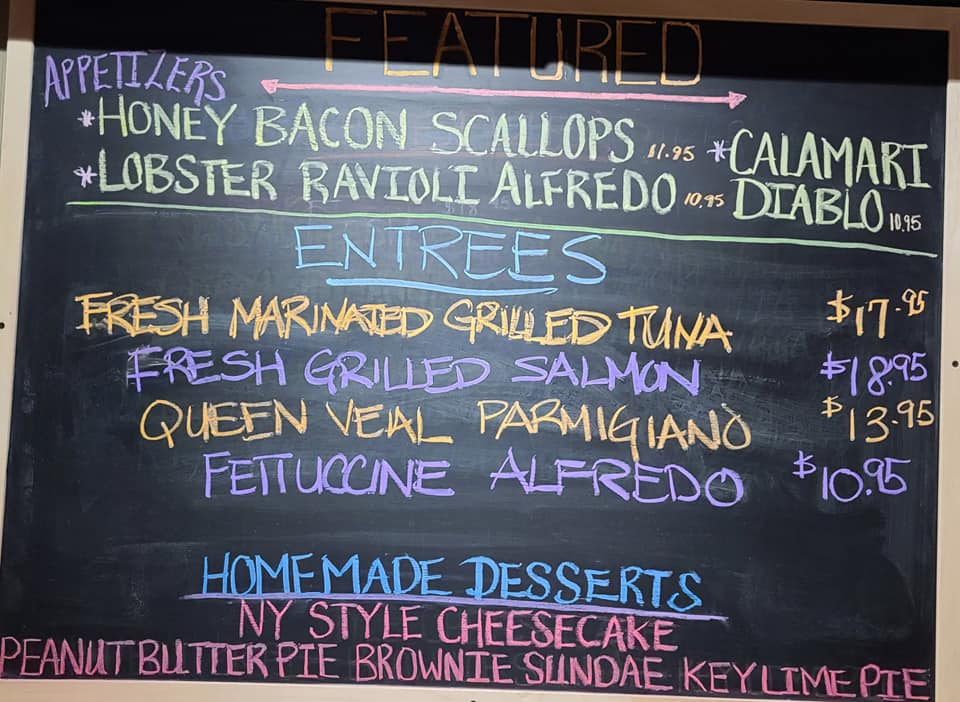 FEATURED
APPETIZERS
*HONEY BACON SCALLOPS 11.95
*LOBSTER RAVIOLI ALFREDO 10.95
*CALAMARI
DIABLO 10.95
ENTREES
FRESH MARINATED GRILLED TUNA $17.95
FRESH GRILLED SALMON $18.95
QUEEN VEAL PARMIGIANO $13.95
FETTUCCINE ALFREDO $10.95
HOMEMADE DESSERTS
NY STYLE CHEESECAKE
PEANUT BUTTER PIE BROWNIE SUNDAE KEY LIME PIE